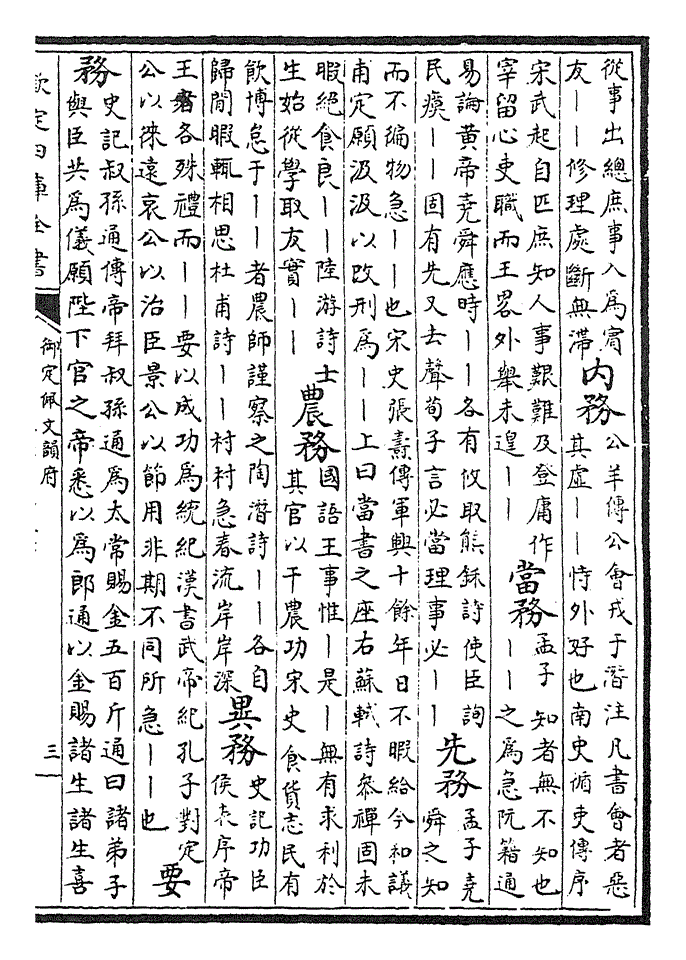 從事出總庶事入爲賔
友丨丨修理處斷無滯
内務
公羊傳公會戎于潛注凡書會者惡
其虚丨丨恃外好也南史循吏傳序
宋武起自匹庶知人事艱難及登庸作
宰留心吏職而王畧外舉未遑丨丨
當務
孟子知者無不知也
丨丨之爲急阮籍通
易論黄帝堯舜應時丨丨各有攸取熊鉌詩使臣詢
民瘼丨丨固有先又去聲荀子言必當理事必丨丨
先務
孟子堯
舜之知
而不徧物急丨丨也宋史張燾傳軍興十餘年日不暇給今和議
甫定願汲汲以政刑爲丨丨上曰當書之座右蘇軾詩參禪固未
暇絶食良丨丨陸游詩士
生始從學取友實丨丨
農務
國語王事惟丨是丨無有求利於
其官以干農功宋史食貨志民有
飲博怠于丨丨者農師謹察之陶潛詩丨丨各自
歸閒暇輒相思杜甫詩丨丨村村急春流岸岸深
異務
史記功臣
侯表序帝
王者各殊禮而丨丨要以成功爲統紀漢書武帝紀孔子對定
公以徠遠哀公以治臣景公以節用非期不同所急丨丨也
要
務
史記叔孫通傳帝拜叔孫通爲太常賜金五百斤通曰諸弟子
與臣共爲儀願陛下官之帝悉以爲郎通以金賜諸生諸生喜
欽定四庫全書
御定佩文韻府
三